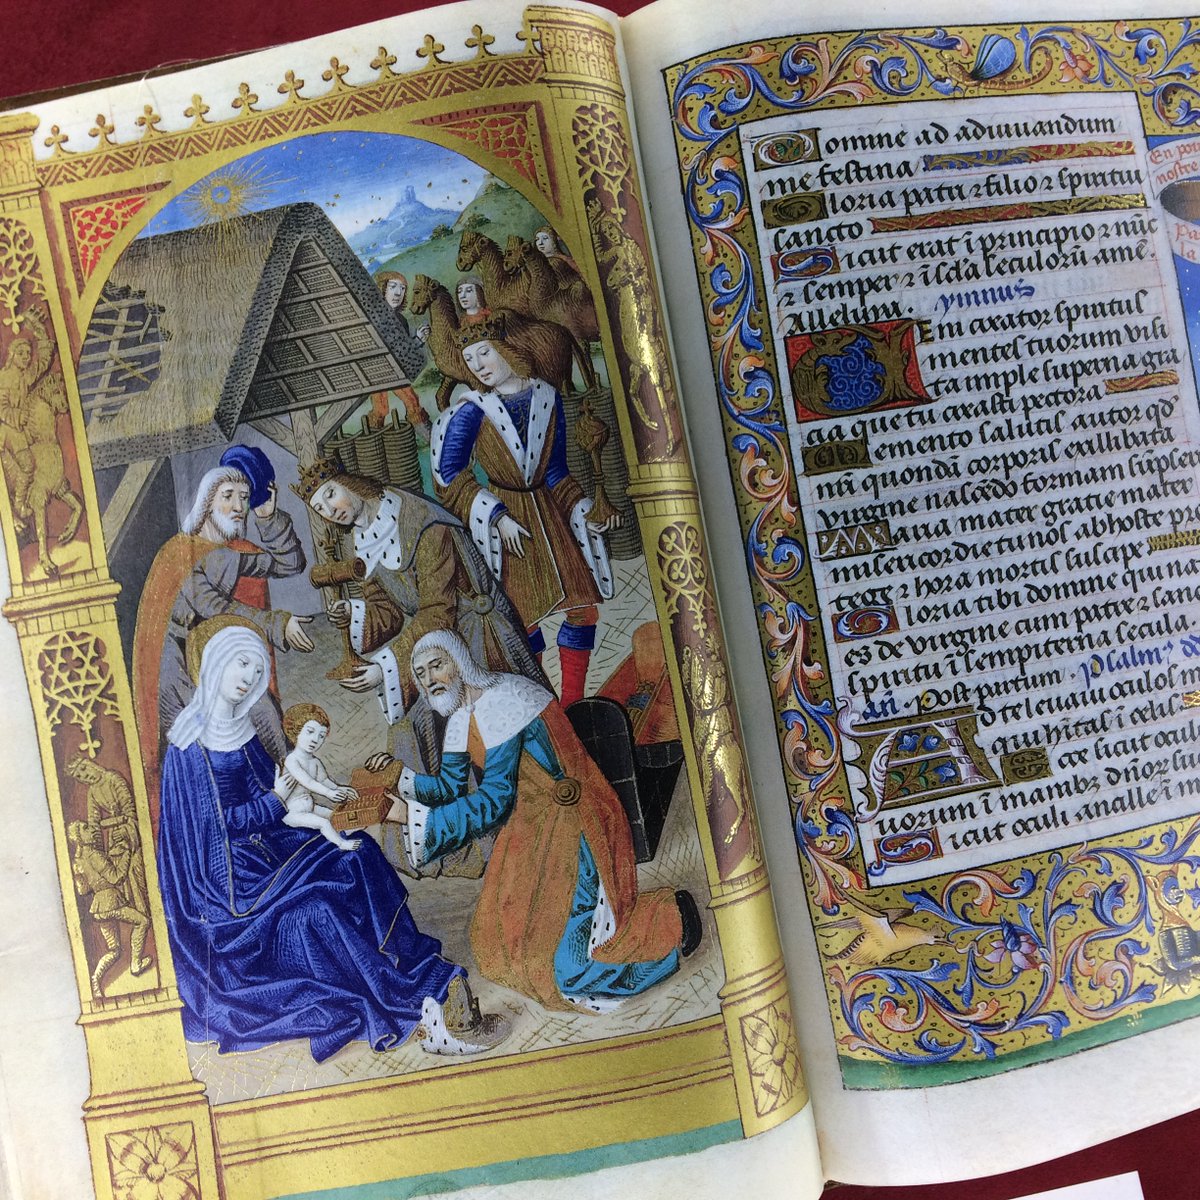 Domine ad adiuuandum
me festina
Gloria patri ⁊ filio ⁊ spiritui
sancto
Sicut erat ī principio ⁊ nūc
⁊ semper ⁊ ī scla seculorū amē.
Alleluya ymnus
Veni creator spiritus
mentes tuorum visi
ta imple superna gra
cia que tu creasti pectora
Memento salutis autor qd
nrī quondā corporis ex illibata
virgine nascēdo formam sūpseri
Maria mater gratie mater
misericordie tu nos ab hoste
tege ⁊ hora mortis suscipe
Gloria tibi domine qui na
es de virgine cum patre ⁊ sanc
spiritu ī sempiterna secula
an. Post partum. Psalmꝰ
Ad te leuaui oculos m
qui hītas ī celis
Ecce sicut ocul
uorum ī manibꝫ dn̄oꝝ su
Sicut oculi ancille ī m
En pou
nostre
pa
la